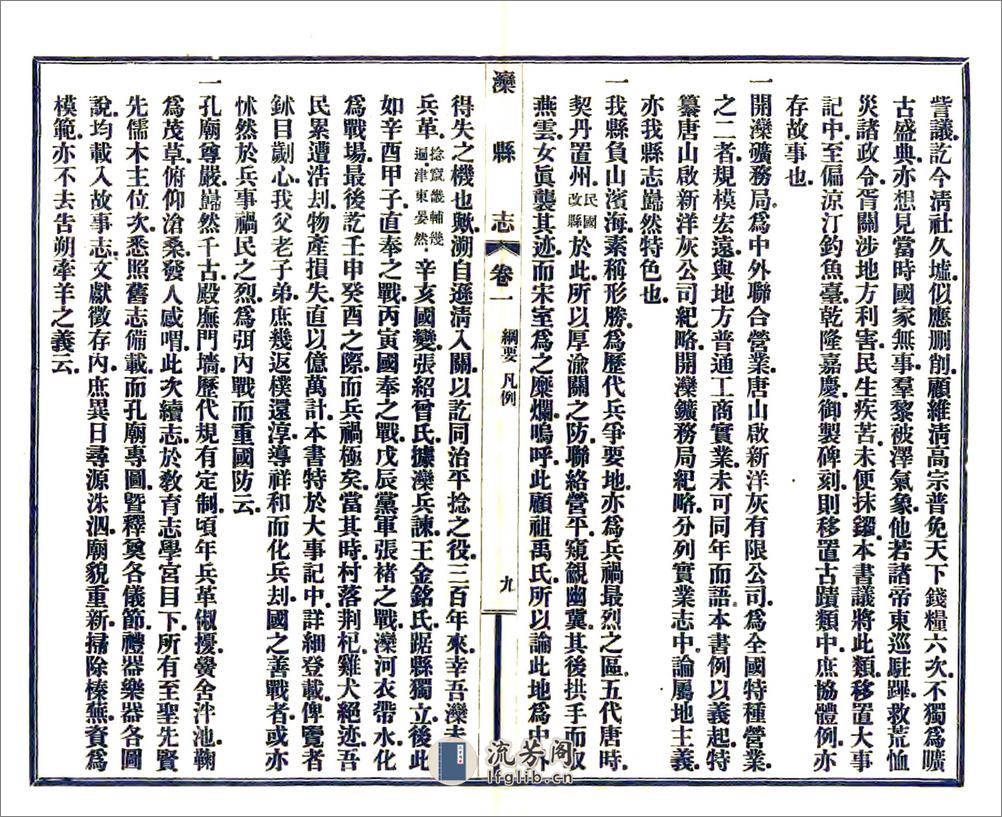 訾議。訖今清社久墟。似應删削。顧維清高宗普免天下錢糧六次。不獨爲曠
古盛典。亦想見當時國家無事。羣黎被澤氣象。他若諸帝東巡駐蹕。救荒恤
災諸政令。胥關涉地方利害。民生疾苦。未便抹鎩。本書議將此類。移置大事
記中。至偏凉汀釣魚臺。乾隆嘉慶御製碑刻。則移置古蹟類中。庶協體例。亦
存故事也。
一 開灤礦務局。爲中外聯合營業。唐山啟新洋灰有限公司。爲全國特種營業。
之二者。規模宏遠。與地方普通工商實業。未可同年而語。本書例以義起。特
纂唐山啟新洋灰公司紀略。開灤鑛務局紀略。分列實業志中。論屬地主義。
亦我縣志巋然特色也。
一 我縣負山濱海。素稱形勝。爲歷代兵爭要地。亦爲兵禍最烈之區。五代唐時。
契丹置州。民國改縣。於此。所以厚渝關之防。聯絡營平。窺覦幽冀。其後拱手而取
燕雲。女眞襲其迹。而宋室爲之糜爛。嗚呼。此顧祖禹氏所以論此地爲中外
灤縣志 卷一 綱要 凡例 九
得失之機也歟。溯自遜清入關。以訖同治平捻之役。三百年來。幸吾灤未
兵革。捻竄畿輔幾遍。津東晏然。辛亥國變。張紹曾氏據灤兵諫。王金銘氏踞縣獨立。後此
如辛酉甲子。直奉之戰。丙寅國奉之戰。戊辰黨軍張褚之戰。灤河衣帶水。化
爲戰場。最後訖壬申癸酉之際。而兵禍極矣。當其時村落荆杞。雞犬絕迹。吾
民累遭浩刦。物產損失。直以億萬計。本書特於大事記中。詳細登載。俾覽者
鉥目劌心。我父老子弟。庶幾返樸還淳。導祥和而化兵刦。國之善戰者。或亦
怵然於兵事禍民之烈。爲弭內戰而重國防云。
一 孔廟尊嚴。巋然千古。殿廡門墻。歷代規有定制。頃年兵革俶擾。黌舍泮池。鞠
爲茂草。俯仰滄桑。發人感喟。此次續志。於教育志學宮目下。所有至聖先賢
先儒木主位次。悉照舊志備載。而孔廟專圖。暨釋奠各儀節。禮器樂器各圖
說。均載入故事志文獻徵存內。庶異日尋源洙泗。廟貌重新。掃除榛蕪。資爲
模範。亦不去告朔牽羊之義云。
流芳阁
lfglib.cn